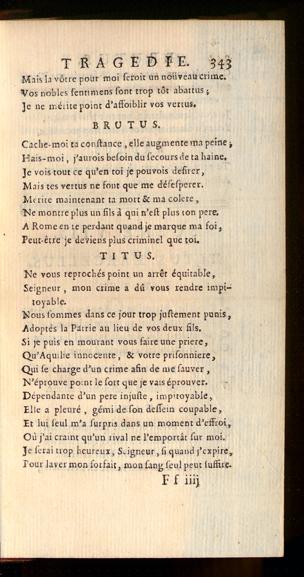 TRAGEDIE. 343
Mais la vôtre pour moi seroit un nouveau crime.
Vos nobles sentimens sont trop tôt abattus;
Je ne mérite point d'affoiblir vos vertus.
BRUTUS.
Cache-moi ta constance, elle augmente ma peine;
Hais-moi, j'aurois besoin du secours de ta haine.
Je vois tout ce qu'en toi je pouvois desirer,
Mais tes vertus ne font que me désesperer.
Merite maintenant ta mort & ma colere,
Ne montre plus un fils à qui n'est plus ton pere.
A Rome en te perdant quand je marque ma foi,
Peut-être je deviens plus criminel que toi.
TITUS.
Ne vous reprochés point un arrêt équitable,
Seigneur, mon crime a dû vous rendre impi-
toyable.
Nous sommes dans ce jour trop justement punis,
Adoptés la Patrie au lieu de vos deux fils.
Si je puis en mourant vous faire une priere,
Qu'Aquilie innocente, & votre prisonniere,
Qui se charge d'un crime afin de me sauver,
N'éprouve point le sort que je vais éprouver.
Dépendante d'un pere injuste, impitoyable,
Elle a pleuré, gémi de son dessein coupable,
Et lui seul m'a surpris dans un moment d'effroi,
Où j'ai craint qu'un rival ne l'emportât sur moi.
Je serai trop heureux, Seigneur, si quand j'expire,
Pour laver mon forfait, mon sang seul peut suffire.
Ff iiij